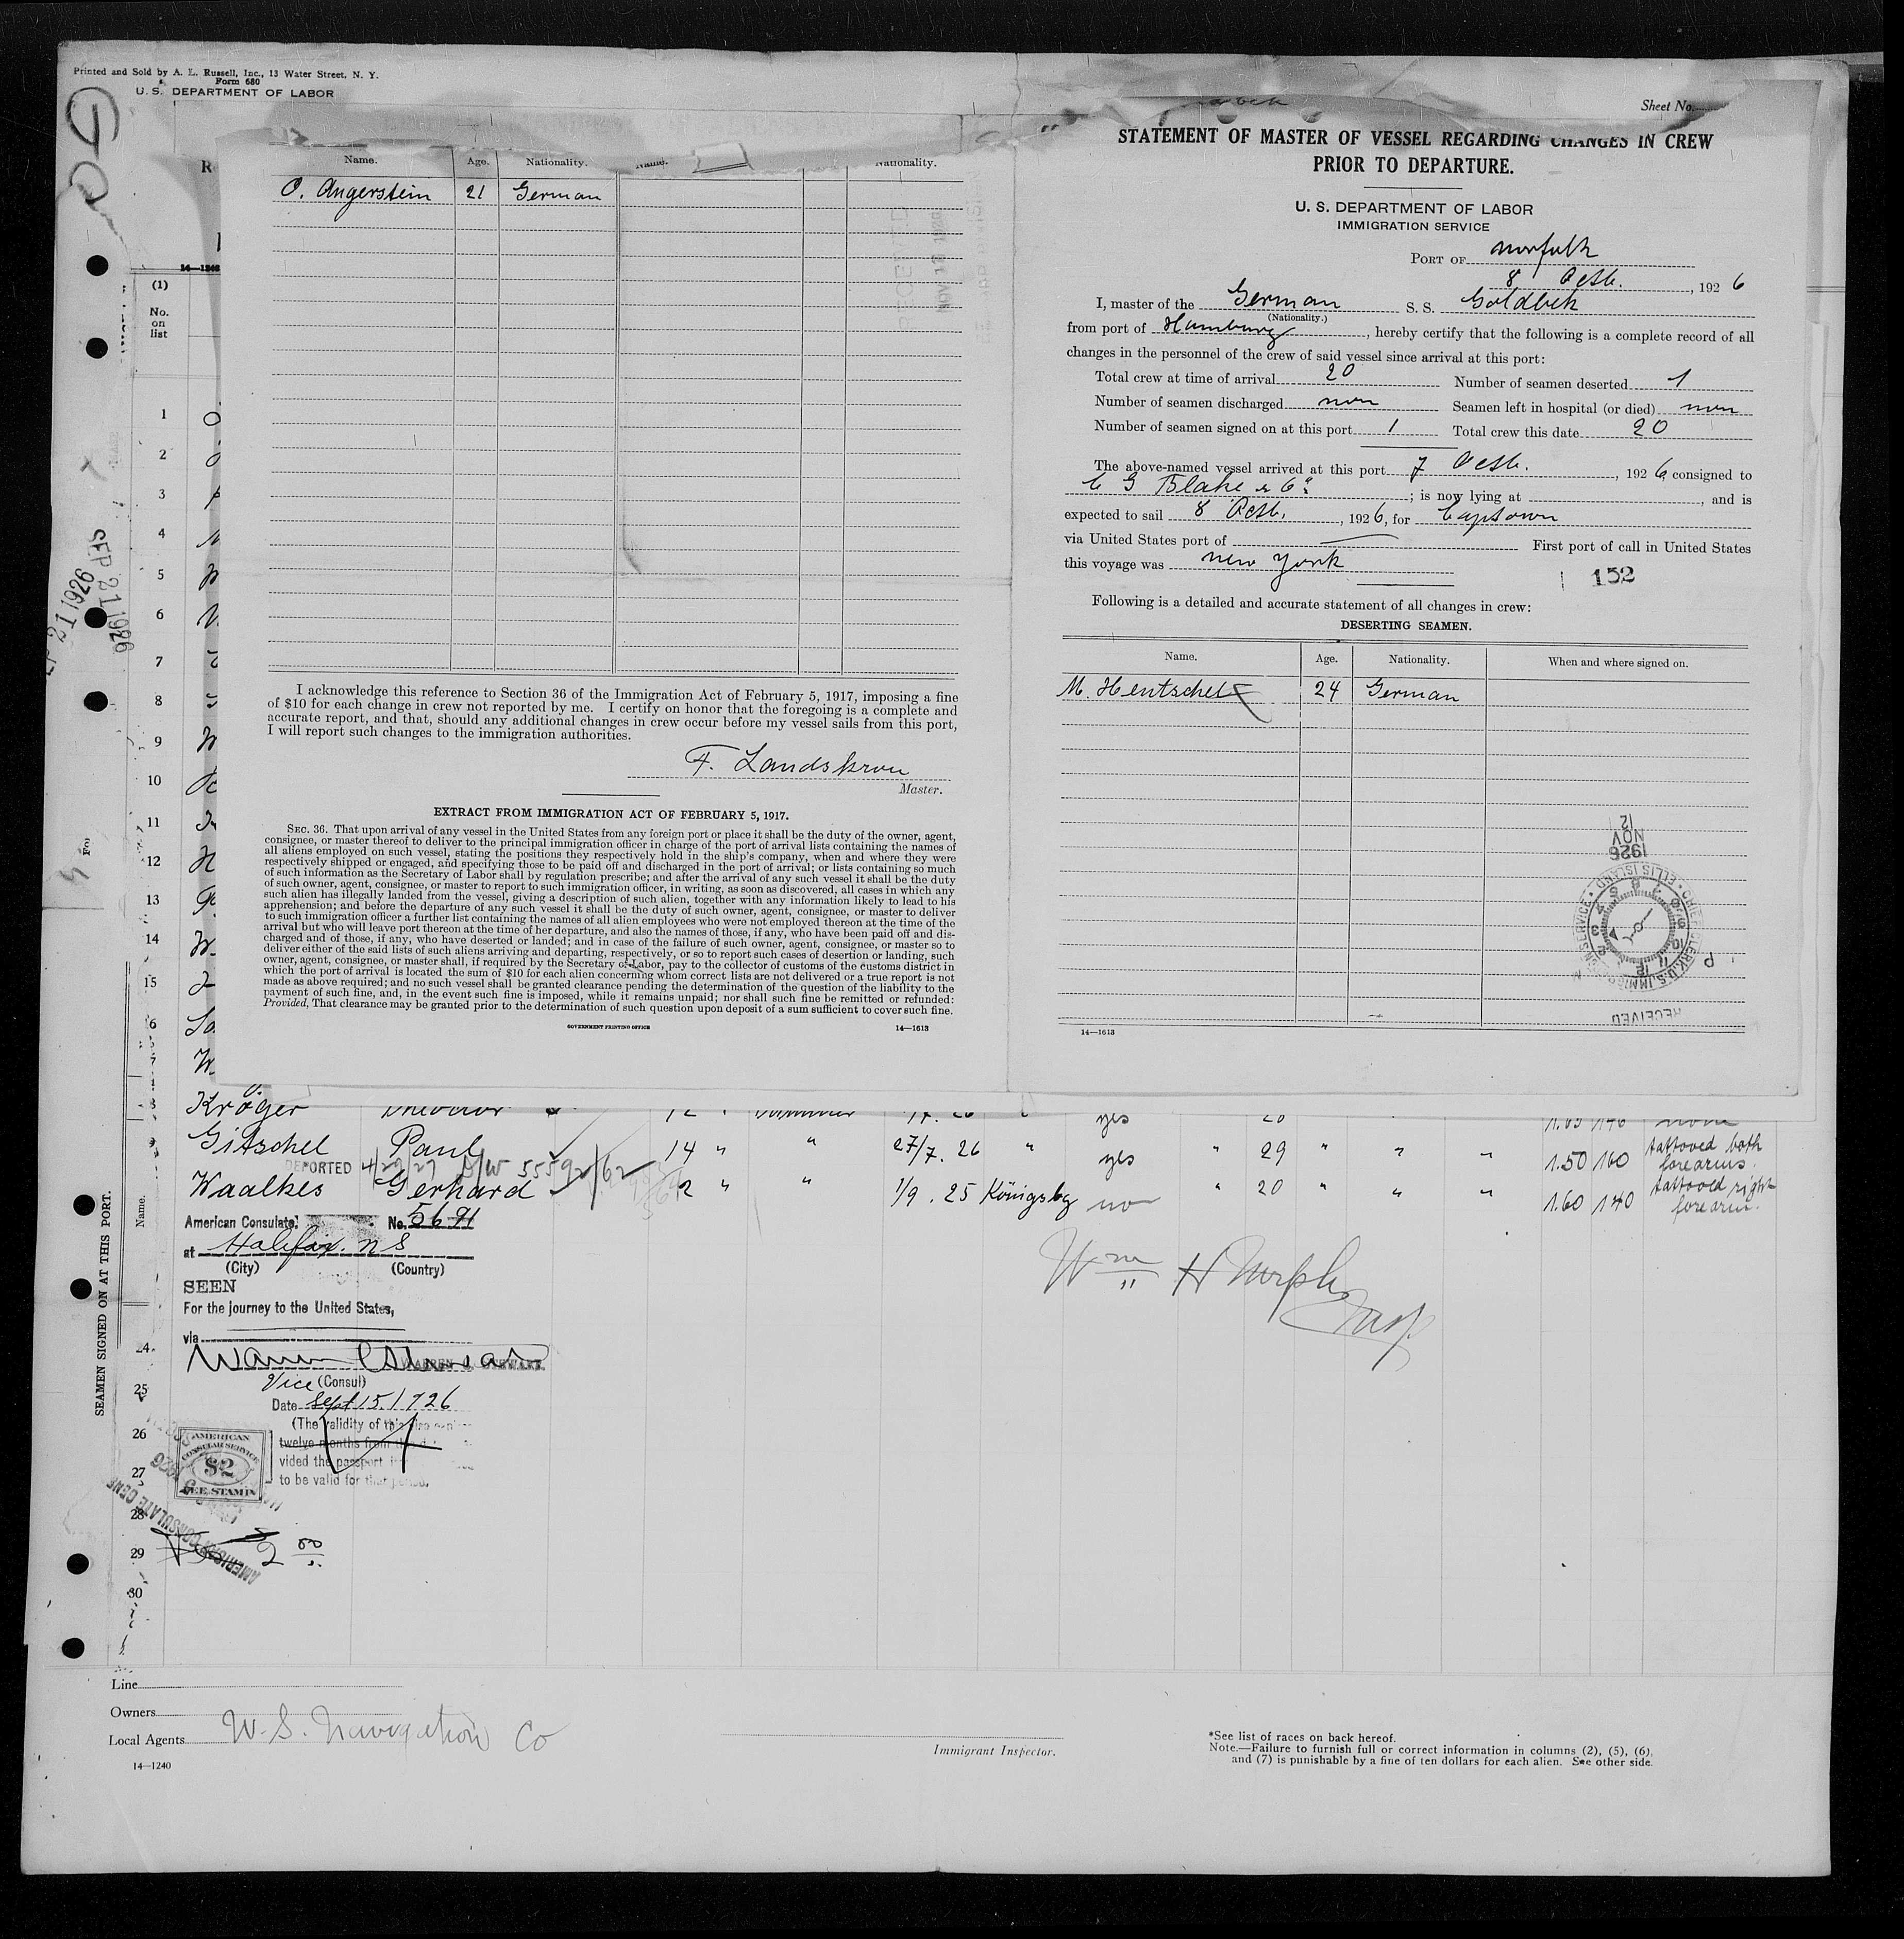 Printed and Sold by A. L. Russell, Inc., 13 Water Street, N. Y.
Form 680
U. S. DEPARTMENT OF LABOR
Sheet No.
14—1240
(1)
No. on list
1
2
3
4
5
6
7
8
9
10
11
12
13
14
15
SEP 21 1926
Name. Age. Nationality. Name. Nationality.
O. Angerstein 21 German
I acknowledge this reference to Section 36 of the Immigration Act of February 5, 1917, imposing a fine
of $10 for each change in crew not reported by me. I certify on honor that the foregoing is a complete and
accurate report, and that, should any additional changes in crew occur before my vessel sails from this port,
I will report such changes to the immigration authorities.
F. Landskron
Master.
EXTRACT FROM IMMIGRATION ACT OF FEBRUARY 5, 1917.
SEC. 36. That upon arrival of any vessel in the United States from any foreign port or place it shall be the duty of the owner, agent,
consignee, or master thereof to deliver to the principal immigration officer in charge of the port of arrival lists containing the names of
all aliens employed on such vessel, stating the positions they respectively hold in the ship's company, when and where they were
respectively shipped or engaged, and specifying those to be paid off and discharged in the port of arrival; or lists containing so much
of such information as the Secretary of Labor shall by regulation prescribe; and after the arrival of any such vessel it shall be the duty
of such owner, agent, consignee, or master to report to such immigration officer, in writing, as soon as discovered, all cases in which any
such alien has illegally landed from the vessel, giving a description of such alien, together with any information likely to lead to his
apprehension; and before the departure of any such vessel it shall be the duty of such owner, agent, consignee, or master to deliver
to such immigration officer a further list containing the names of all alien employees who were not employed thereon at the time of the
arrival but who will leave port thereon at the time of her departure, and also the names of those, if any, who have been paid off and dis-
charged and of those, if any, who have deserted or landed; and in case of the failure of such owner, agent, consignee, or master so to
deliver either of the said lists of such aliens arriving and departing, respectively, or so to report such cases of desertion or landing, such
owner, agent, consignee, or master shall, if required by the Secretary of Labor, pay to the collector of customs of the customs district in
which the port of arrival is located the sum of $10 for each alien concerning whom correct lists are not delivered or a true report is not
made as above required; and no such vessel shall be granted clearance pending the determination of the question of the liability to the
payment of such fine, and, in the event such fine is imposed, while it remains unpaid; nor shall such fine be remitted or refunded:
Provided, That clearance may be granted prior to the determination of such question upon deposit of a sum sufficient to cover such fine.
GOVERNMENT PRINTING OFFICE 14—1613
STATEMENT OF MASTER OF VESSEL REGARDING CHANGES IN CREW
PRIOR TO DEPARTURE.
U. S. DEPARTMENT OF LABOR
IMMIGRATION SERVICE
PORT OF Norfolk
8 Octb., 1926
I, master of the German S. S. Goldbek
(Nationality.)
from port of Hamburg, hereby certify that the following is a complete record of all
changes in the personnel of the crew of said vessel since arrival at this port:
Total crew at time of arrival 20 Number of seamen deserted 1
Number of seamen discharged non Seamen left in hospital (or died) non
Number of seamen signed on at this port 1 Total crew this date 20
The above-named vessel arrived at this port 7 Octb., 1926 consigned to
C G Blake & Co; is now lying at , and is
expected to sail 8 Octb., 1926, for Captown
via United States port of First port of call in United States
this voyage was new york
152
Following is a detailed and accurate statement of all changes in crew:
DESERTING SEAMEN.
Name. Age. Nationality. When and where signed on.
M. Hentschel 24 German
1926 NOV 12
CHIEF CLERK, U.S. IMMIGRATION SERVICE ELLIS ISLAND
RECEIVED
14—1613
Kröger
yes
Gitschel Paul 14 " " 27/7. 26 " yes " 29 " " " 1.50 160 tattooed both forearms.
DEPORTED 4/29/27 55592/62
Waalkes Gerhard 2 " " 1/9. 25 Königsbg no " 20 " " " 1.60 140 tattooed right forearm.
American Consulate No. 5691
at Halifax. N S
(City) (Country)
SEEN
For the journey to the United States,
via
Vice (Consul)
Date Sept 15. 1926
(The validity of this
twelve months from
vided the passport
to be valid for that period.
AMERICAN CONSULAR SERVICE
$2
FEE STAMP
AMERICAN CONSULATE GENE
2 00
Wm H Murphy
Insp.
SEAMEN SIGNED ON AT THIS PORT.
Name.
24
25
26
27
28
29
30
Line
Owners
Local Agents W. S. Navigation Co
14—1240
Immigrant Inspector.
*See list of races on back hereof.
Note.—Failure to furnish full or correct information in columns (2), (5), (6),
and (7) is punishable by a fine of ten dollars for each alien. See other side.